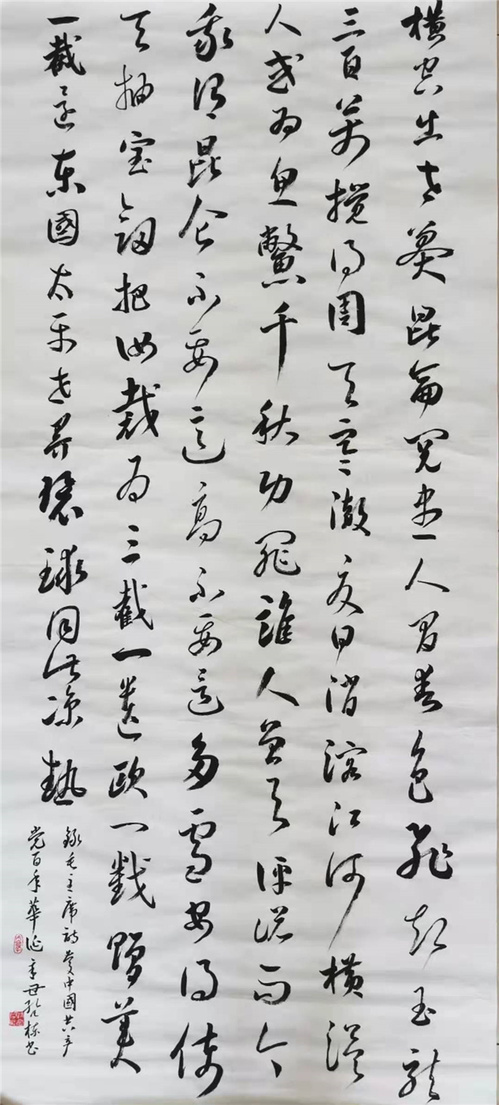 横空出世莽昆崙阅尽人间春色飞起玉龙
三百万搅得周天寒澈夏日消溶江河横溢
人或为鱼鳖千秋功罪谁人曾与评说而今
我谓昆仑不要这高不要这多雪安得倚
天抽宝剑把汝裁为三截一遗欧一截赠美
一截还东國太平世界环球同此凉热
录毛主席诗贺中國共产
党百年華诞